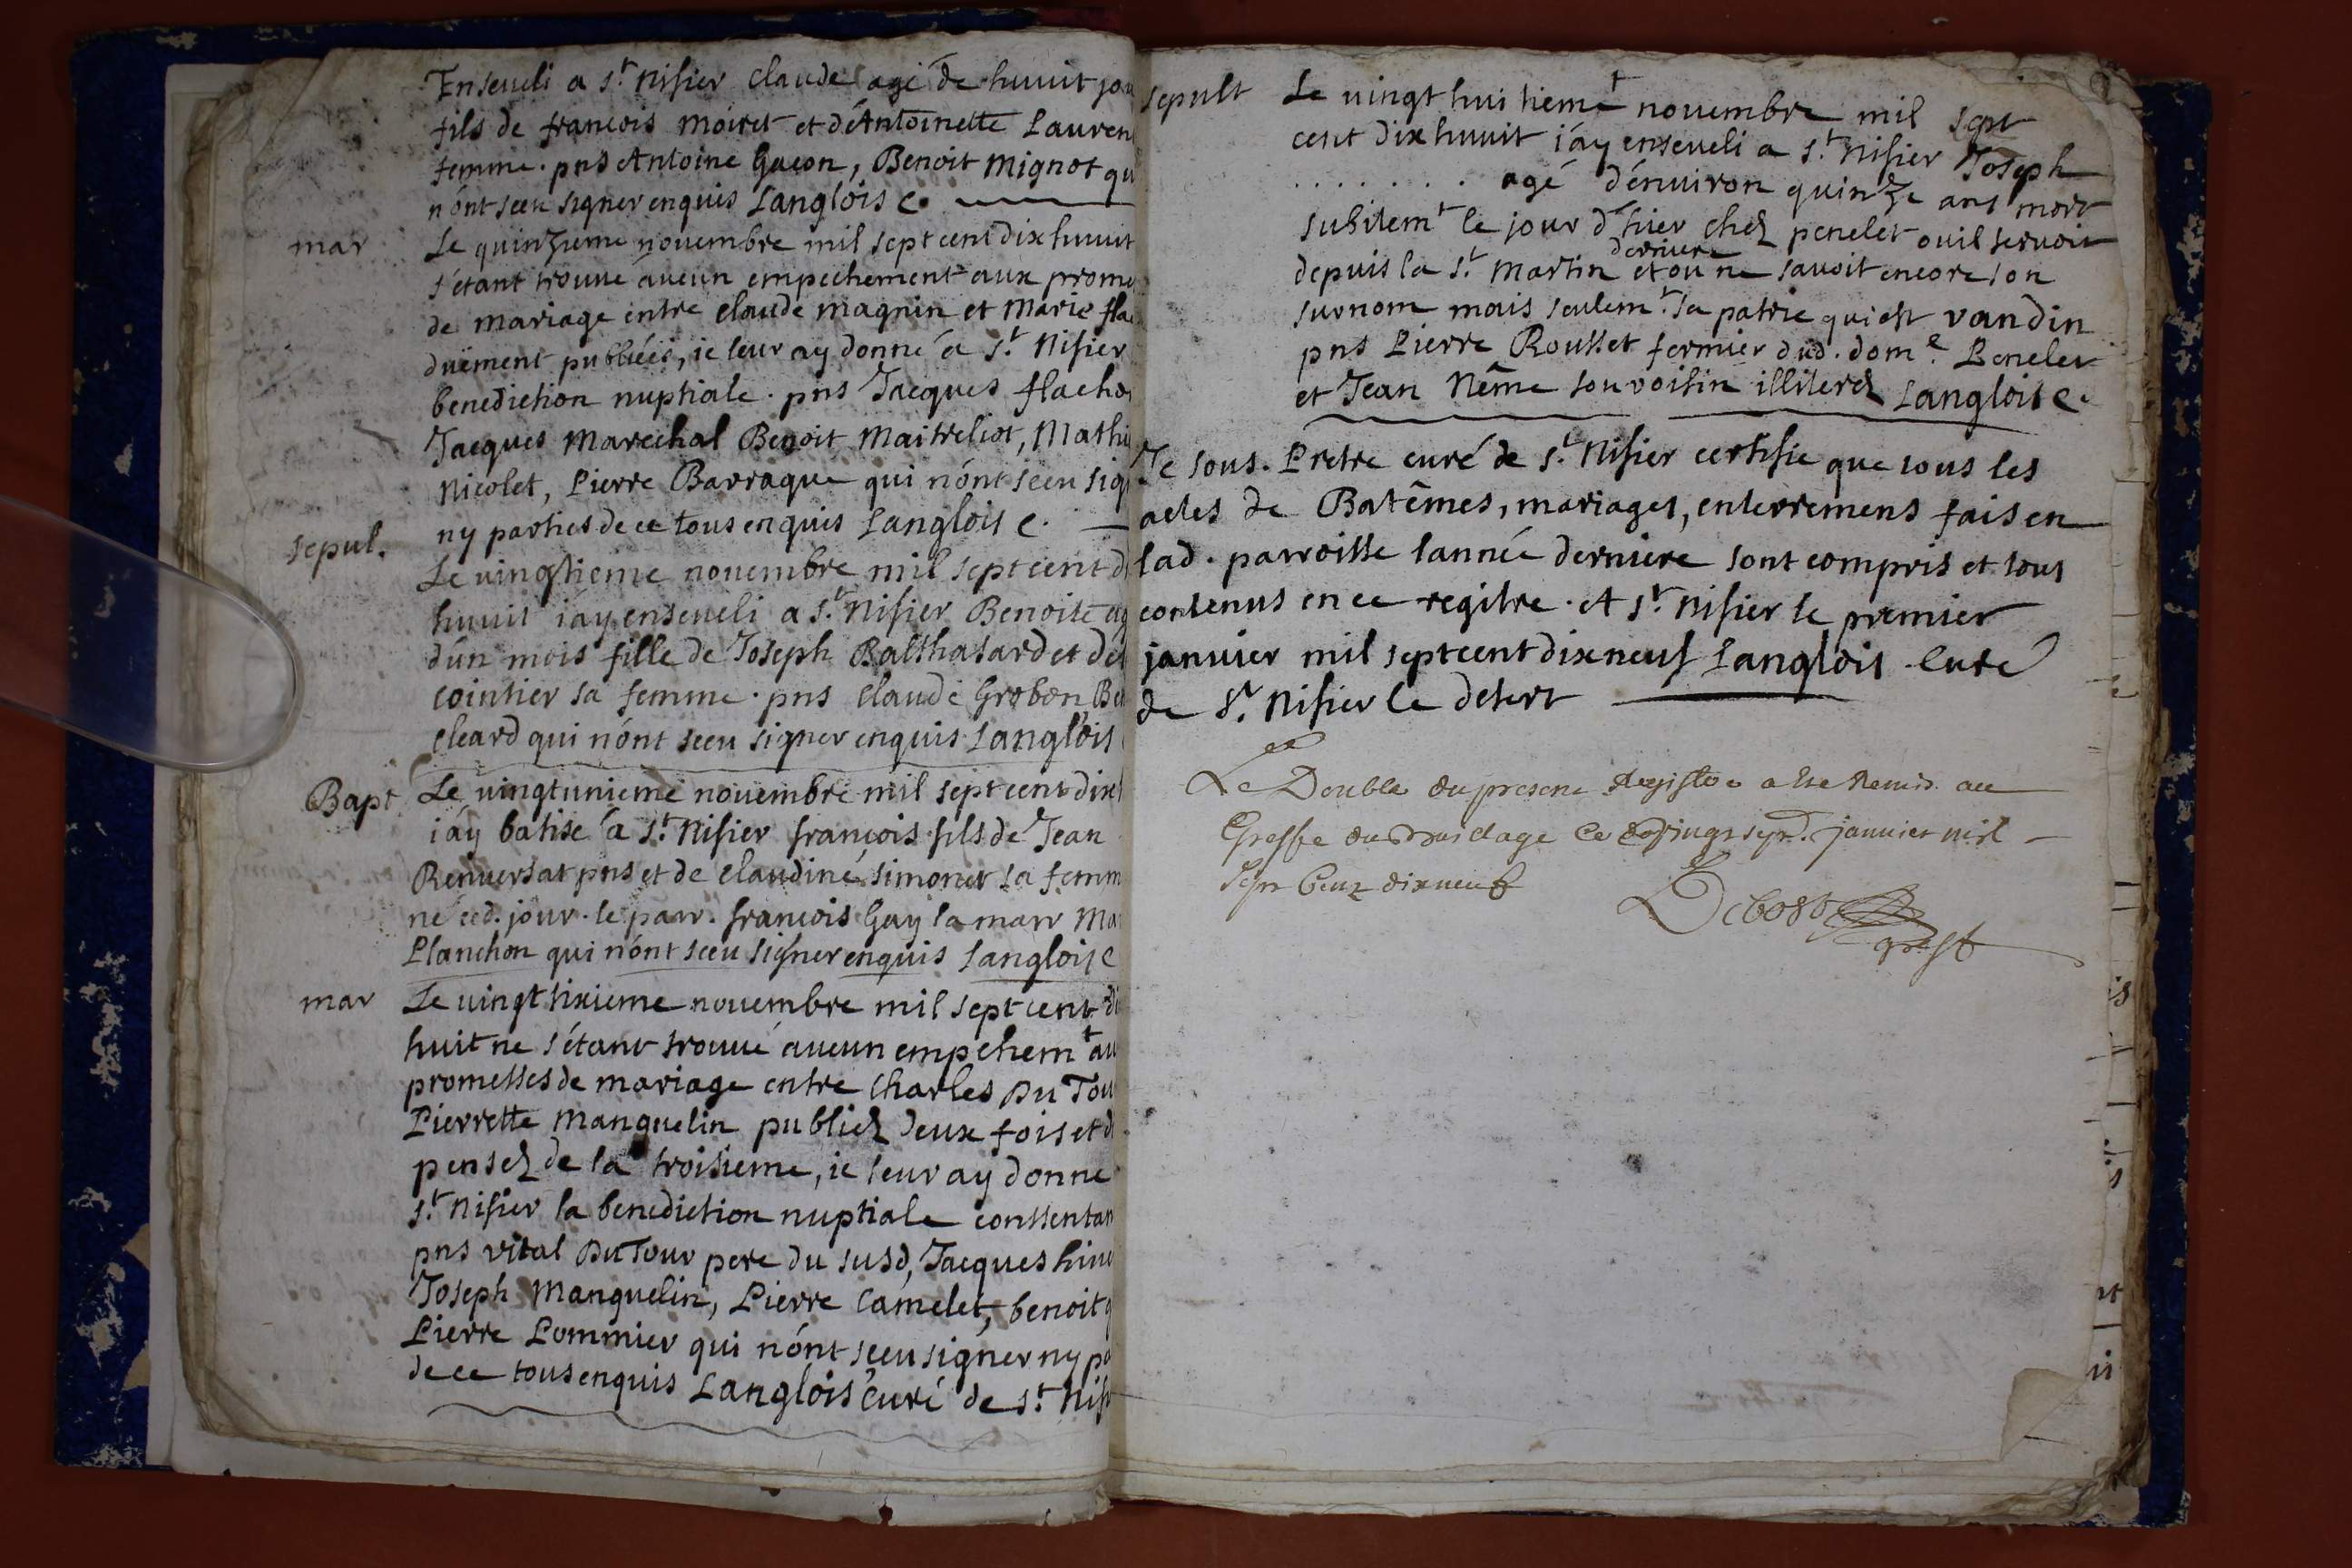 Enseveli a s.t Nisier claude agé de huuit jou
fils de francois Moiret et d'Antoinette Lauren
femme. pns Antoine Gacon, Benoit Mignot qu
n'ont sceu signer enquis Langlois c.
mar
Le quinzieme novembre mil sept cent dix huuit
s'etant trouvé aucun empechement aux prome
de mariage entre claude magnin et Marie fla
duement publiées, ie leur ay donné a s.t Nisier
benediction nuptiale. pns Jacques flacho
Jacques Marechal Benoit Maitreliot, Mathi
Nicolet, Pierre Barraque qui n'ont sceu sig
ny parties de ce tous enquis Langlois c.
sepul.
Le vingtieme novembre mil sept cent d
huuit i'ay enseveli a s.t Nisier Benoite ag
d'un mois fille de Joseph Balthasard et de
cointier sa femme. pns claude Grobon Be
cleard qui n'ont sceu signer enquis Langlois
Bapt
Le vingtunieme novembre mil sept cent dix
i'ay batisé a s.t Nisier françois fils de Jean
Renversat pns et de claudine simonet sa femm
né ced. jour. le parr. francois Gay la marr Ma
Planchon qui n'ont sceu signer enquis Langlois c
mar
Le vingt sixieme novembre mil sept cent di
huit ne s'étant trouvé aucun empchem.t au
promesses de mariage entre Charles Du Tou
Pierrette Manguelin publiez deux fois et d
pensez de la troisieme, ie leur ay donne
s.t Nisier la benediction nuptiale conssentan
pns vital DuTour pere du susd, Jacques
Joseph Manguelin, Pierre Camelet, benoit
Pierre Pommier qui n'ont sceu signer ny pa
de ce tous enquis Langlois curé de s.t Nis
sepult
Le vingt huitieme novembre mil sept
cent dix huuit i'ay enseveli a s.t Nisier Joseph
. . . . . . . . agé d'environ quinze ans mort
subitem.t le jour d'hier chez penelet ou il servoit
depuis la s.t Martin derniere et on ne savoit encore son
surnom mais seulem.t sa patrie qui est vandin
pns Pierre Rousset fermier dud. dom.e Penelet
et Jean Nême son voisin illiterez Langlois c.
Je sous. Pretre curé de s.t Nisier certifie que tous les
actes de Batêmes, mariages, enterremens fais en
lad. parroisse lannée derniere sont compris et tous
contenus en ce regitre. A s.t Nisier le premier
janvier mil sept cent dix neuf Langlois Curé
de s.t Nisier le desert
Le Double du present Registre a Este Remis au
Greffe du Bailliage Ce vingt sept. janvier mil
sept Cent dixneuf
Debost
greff